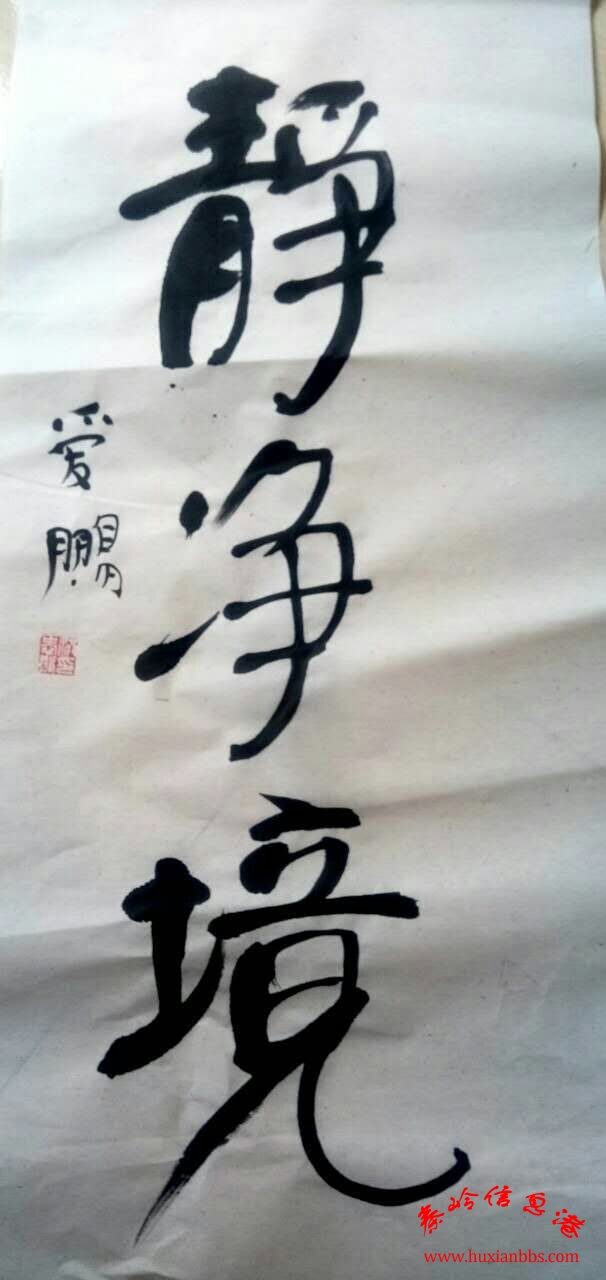 静净境
爱鹏
秦岭信息港
www.huxianbbs.com